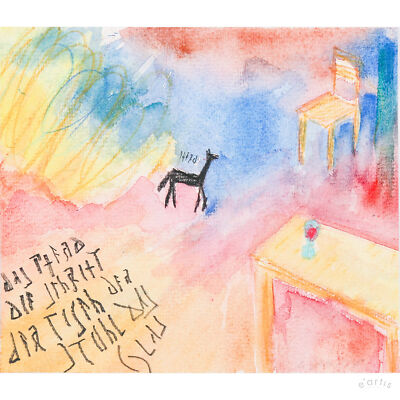 DAS PFERD
DIE SCHRIFT
DER TISCH DER
STUHL DAS
GLAS
e'artis